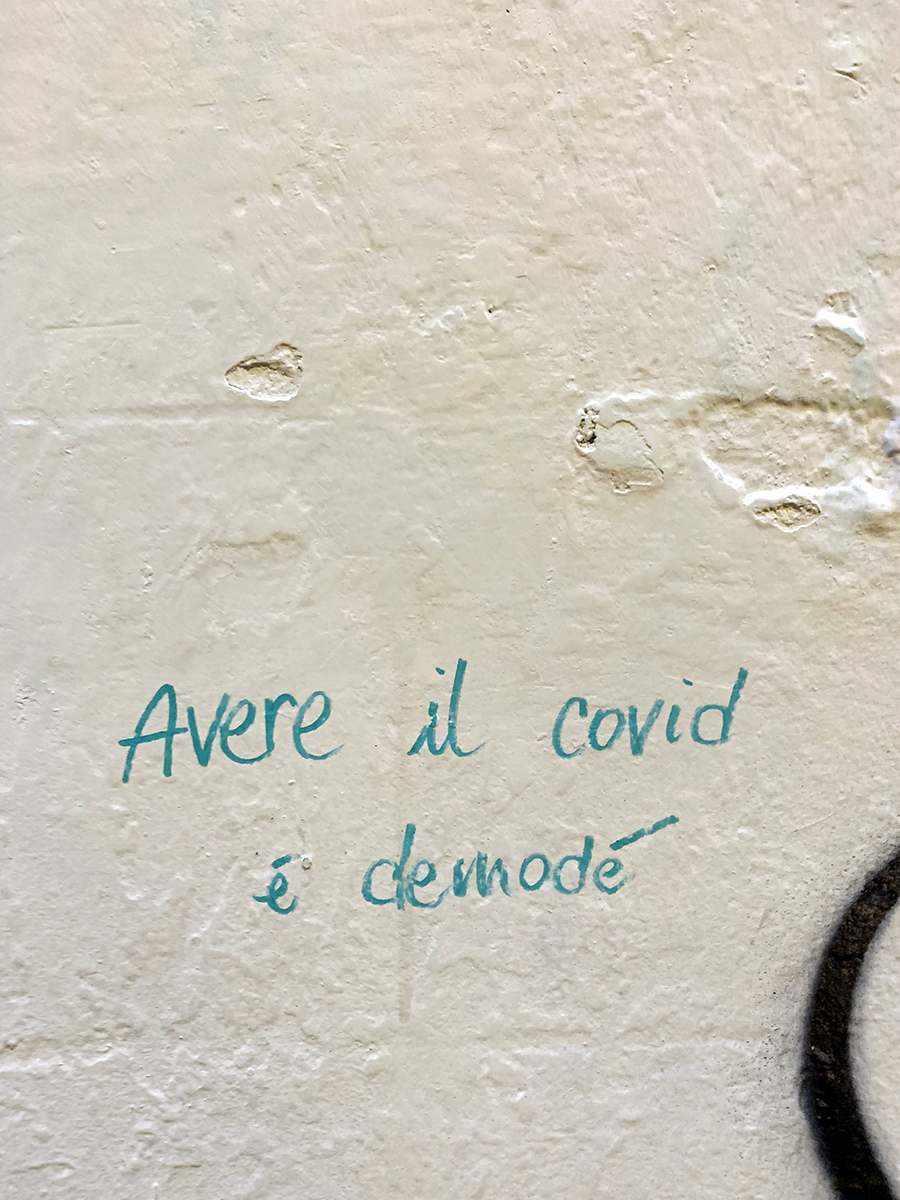 Avere il covid
é demodé